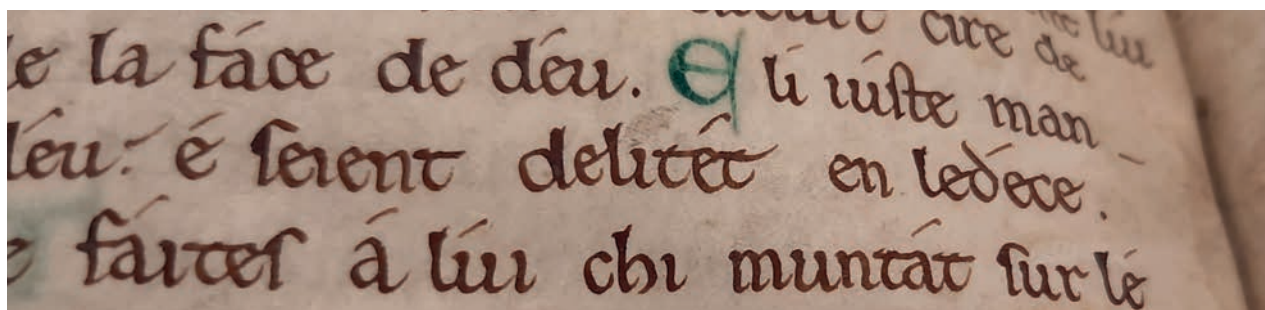 cire de
lui
e la face de déu. E li iúste man-
déu. é seient delitét en ledece.
faites á lúi chi muntát sur lé